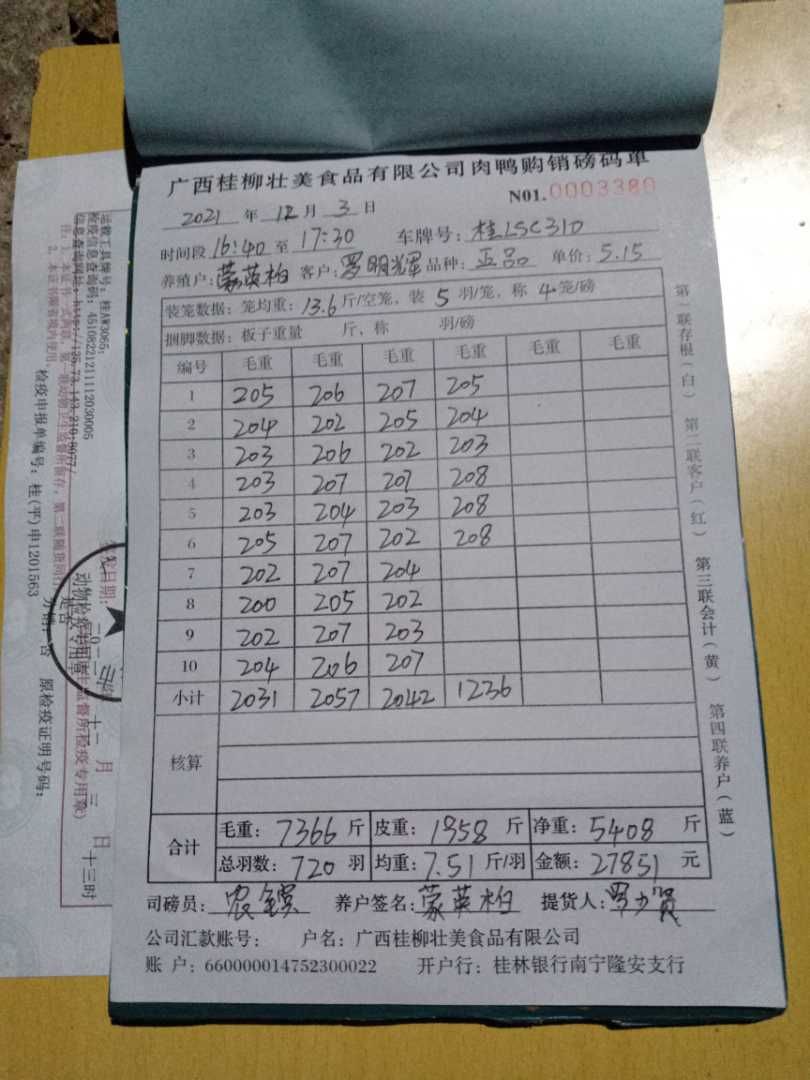 广西桂柳壮美食品有限公司肉鸭购销磅码单
N01.0003380
2021 年 12 月 3 日
时间段 16:40 至 17:30 车牌号: 桂LSC310
养殖户: 蒙英柏 客户: 罗明辉 品种: 正品 单价: 5.15
装笼数据: 笼均重: 13.6 斤/空笼, 装 5 羽/笼, 称 4 笼/磅
捆脚数据: 板子重量 斤、称 羽/磅
编号 毛重 毛重 毛重 毛重 毛重 毛重
1 205 206 207 205
2 204 202 205 204
3 203 206 202 203
4 203 207 207 208
5 203 204 203 208
6 205 207 202 208
7 202 207 204
8 200 205 202
9 202 207 203
10 204 206 207
小计 2031 2057 2042 1236
核算
合计 毛重: 7366 斤 皮重: 1958 斤 净重: 5408 斤
总羽数: 720 羽 均重: 7.51 斤/羽 金额: 27851 元
司磅员: 养户签名: 蒙英柏 提货人:
公司汇款账号: 户名: 广西桂柳壮美食品有限公司
账 户: 660000014752300022 开户行: 桂林银行南宁隆安支行
第一联存根(白) 第二联客户(红) 第三联会计(黄) 第四联养户(蓝)
运载工具牌号: 桂AW3065;
检疫信息查询码: 4510822121112030005
信息查询网址: http://125.73.143.210:8077/
注: 1、本证书一式两联, 第一联动物卫生监督所留存, 第二联随货同行
2、本证书限省境内使用。
检疫申报单编号: 桂(平)申1201563
原检疫证明号码:
动物卫生监督所检疫专用章)
日期: 二〇二一年 十二 月 三 日 十三时